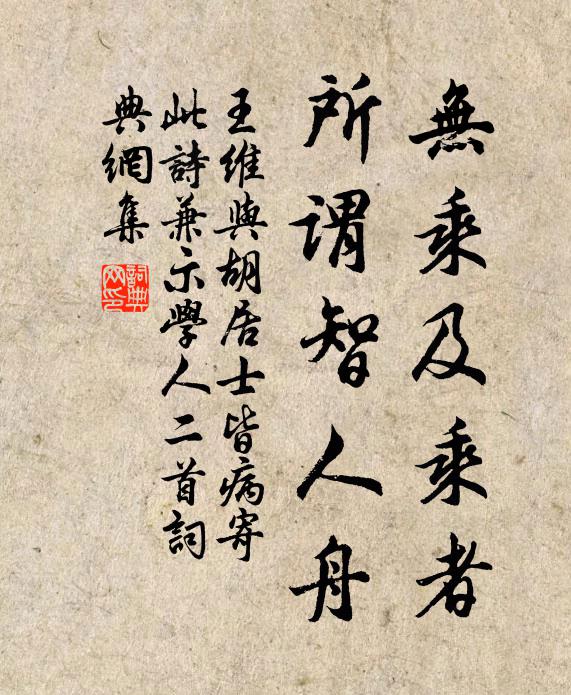 無乘及乘者
所謂智人舟
王維與胡居士皆病寄
此詩兼示學人二首詞
典網集
詞典網印